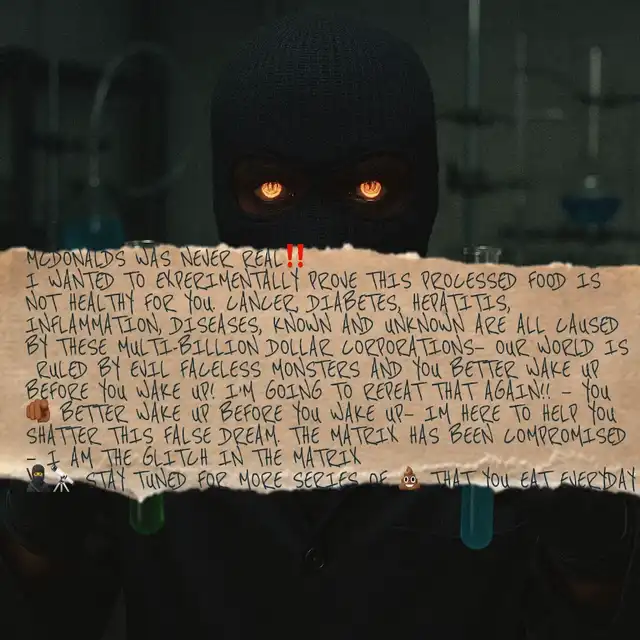 MCDONALDS WAS NEVER REAL‼️
I WANTED TO EXPERIMENTALLY PROVE THIS PROCESSED FOOD IS
NOT HEALTHY FOR YOU. CANCER, DIABETES, HEPATITIS,
INFLAMMATION, DISEASES, KNOWN AND UNKNOWN ARE ALL CAUSED
BY THESE MULTI-BILLION DOLLAR CORPORATIONS- OUR WORLD IS
RULED BY EVIL FACELESS MONSTERS AND YOU BETTER WAKE UP
BEFORE YOU WAKE UP! I'M GOING TO REPEAT THAT AGAIN!! - YOU
🫵🏾 BETTER WAKE UP BEFORE YOU WAKE UP- IM HERE TO HELP YOU
SHATTER THIS FALSE DREAM. THE MATRIX HAS BEEN COMPROMISED
- I AM THE GLITCH IN THE MATRIX
🥷🏿🔭 STAY TUNED FOR MORE SERIES OF 💩 THAT YOU EAT EVERYDAY